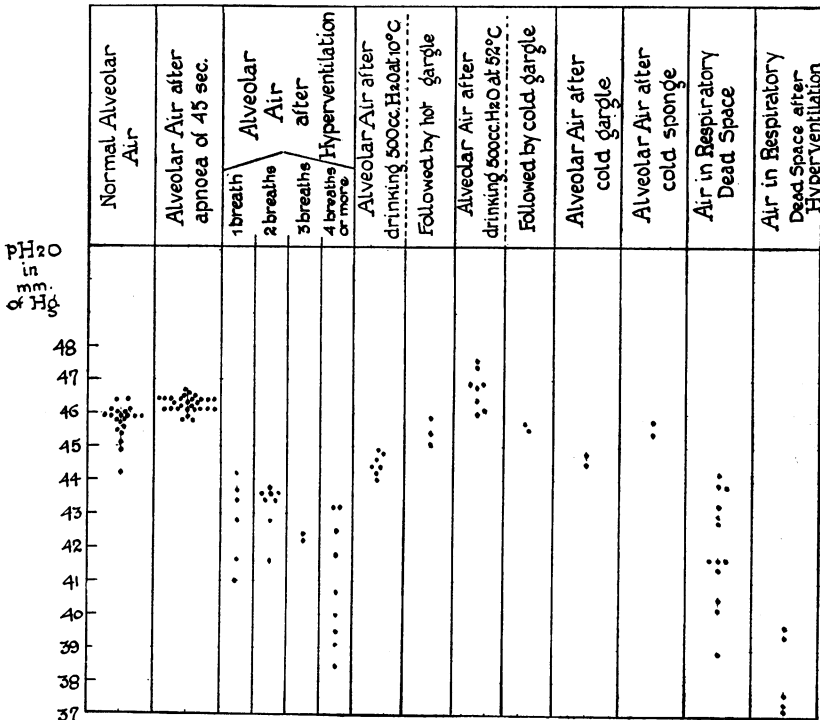 Normal Alveolar
Air
Alveolar Air after
apnoea of 45 sec.
Alveolar
Air
after
Hyperventilation
1 breath
2 breaths
3 breaths
4 breaths
or more
Alveolar Air after
drinking 500cc.H2O at 10°C
Followed by hot gargle
Alveolar Air after
drinking 500cc H2O at 52°C
Followed by cold gargle
Alveolar Air after
cold gargle
Alveolar Air after
cold sponge
Air in Respiratory
Dead Space
Air in Respiratory
Dead Space after
Hyperventilation
pH2O
in
mm.
of Hg
48
47
46
45
44
43
42
41
40
39
38
37